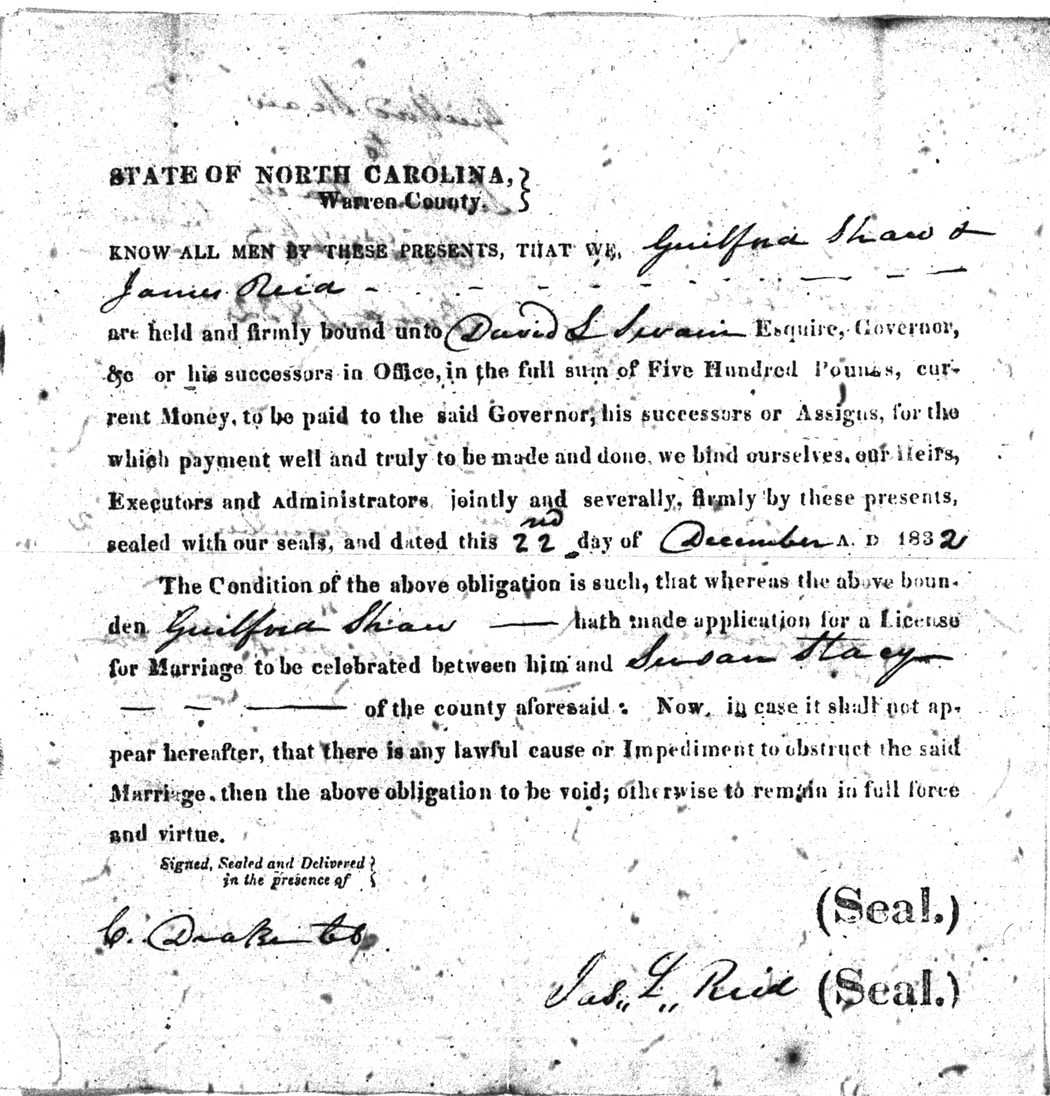 STATE OF NORTH CAROLINA,
Warren County.
KNOW ALL MEN BY THESE PRESENTS, THAT WE, Guilford Shaw &
James Reid
are held and firmly bound unto David L Swain Esquire, Governor,
&c or his successors in Office, in the full sum of Five Hundred Pounds, cur-
rent Money, to be paid to the said Governor, his successors or Assigns, for the
which payment well and truly to be made and done, we bind ourselves, our Heirs,
Executors and Administrators, jointly and severally, firmly by these presents,
sealed with our seals, and dated this 22nd day of December A. D 1832
The Condition of the above obligation is such, that whereas the above boun-
den Guilford Shaw — hath made application for a License
for Marriage to be celebrated between him and Susan Stacy
— — — of the county aforesaid: Now, in case it shall not ap-
pear hereafter, that there is any lawful cause or Impediment to obstruct the said
Marriage, then the above obligation to be void; otherwise to remain in full force
and virtue.
Signed, Sealed and Delivered
in the presence of
(Seal.)
C. Drake
Jas,, L,, Reid (Seal.)